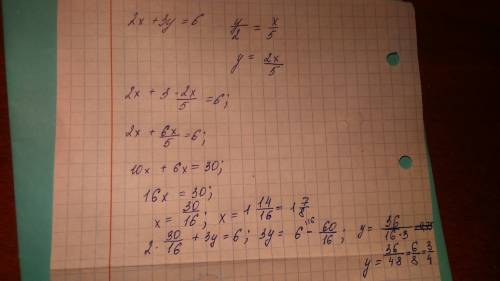 2x + 3y = 6    y/2 = x/5
y = 2x/5
2x + 3 · 2x/5 = 6;
2x + 6x/5 = 6;
10x + 6x = 30;
16x = 30;
x = 30/16; x = 1 14/16 = 1 7/8
2 · 30/16 + 3y = 6; 3y = 6 /16 - 60/16; y = 36/16·3
y = 36/48 = 6/8 = 3/4